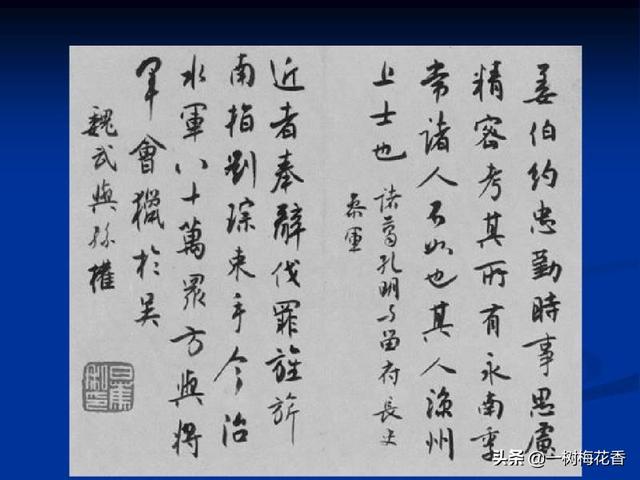 姜伯約忠勤時事思慮
精密考其所有永南季
常諸人不如也其人涼州
上士也 諸葛孔明与留府長史
参軍
近者奉辭伐罪旌旂
南指劉琮束手今治
水軍八十萬眾方與將
軍會獵於吳
魏武與孫權
头条 @一树梅花香